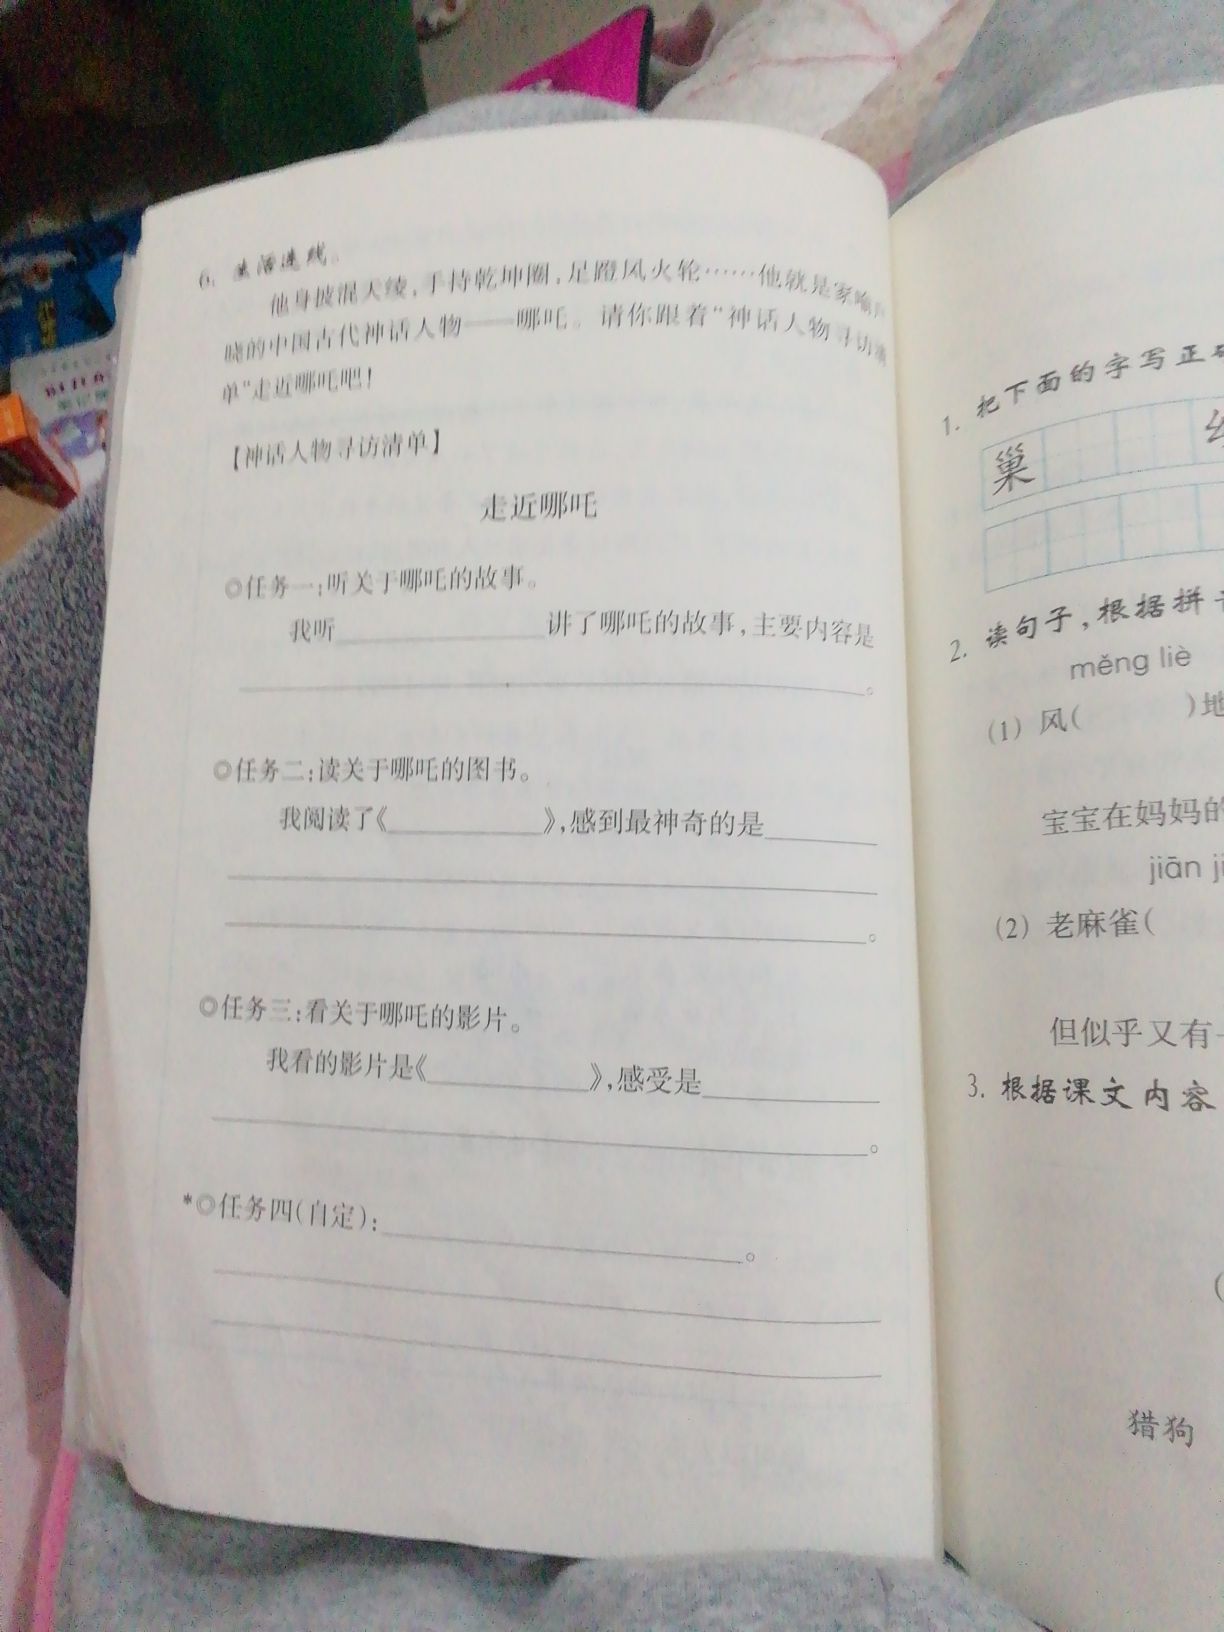 6. 生活连线。
他身披混天绫,手持乾坤圈,足蹬风火轮……他就是家喻户
晓的中国古代神话人物——哪吒。请你跟着“神话人物寻访清
单”走近哪吒吧!
【神话人物寻访清单】
走近哪吒
◎任务一:听关于哪吒的故事。
我听________讲了哪吒的故事,主要内容是
________。
◎任务二:读关于哪吒的图书。
我阅读了《________》,感到最神奇的是____
________
________。
◎任务三:看关于哪吒的影片。
我看的影片是《________》,感受是________
________。
*◎任务四(自定):________。
1. 把下面的字写正确
巢
2. 读句子,根据拼
měng liè
(1) 风( )地
宝宝在妈妈的
jiān ji
(2) 老麻雀(
但似乎又有
3. 根据课文内容
(
猎狗